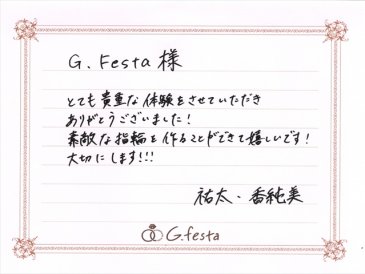 G. Festa 様
とても貴重な体験をさせていただき
ありがとうございました!
素敵な指輪を作ることができて嬉しいです!
大切にします!!!
祐太・香純美
G.festa